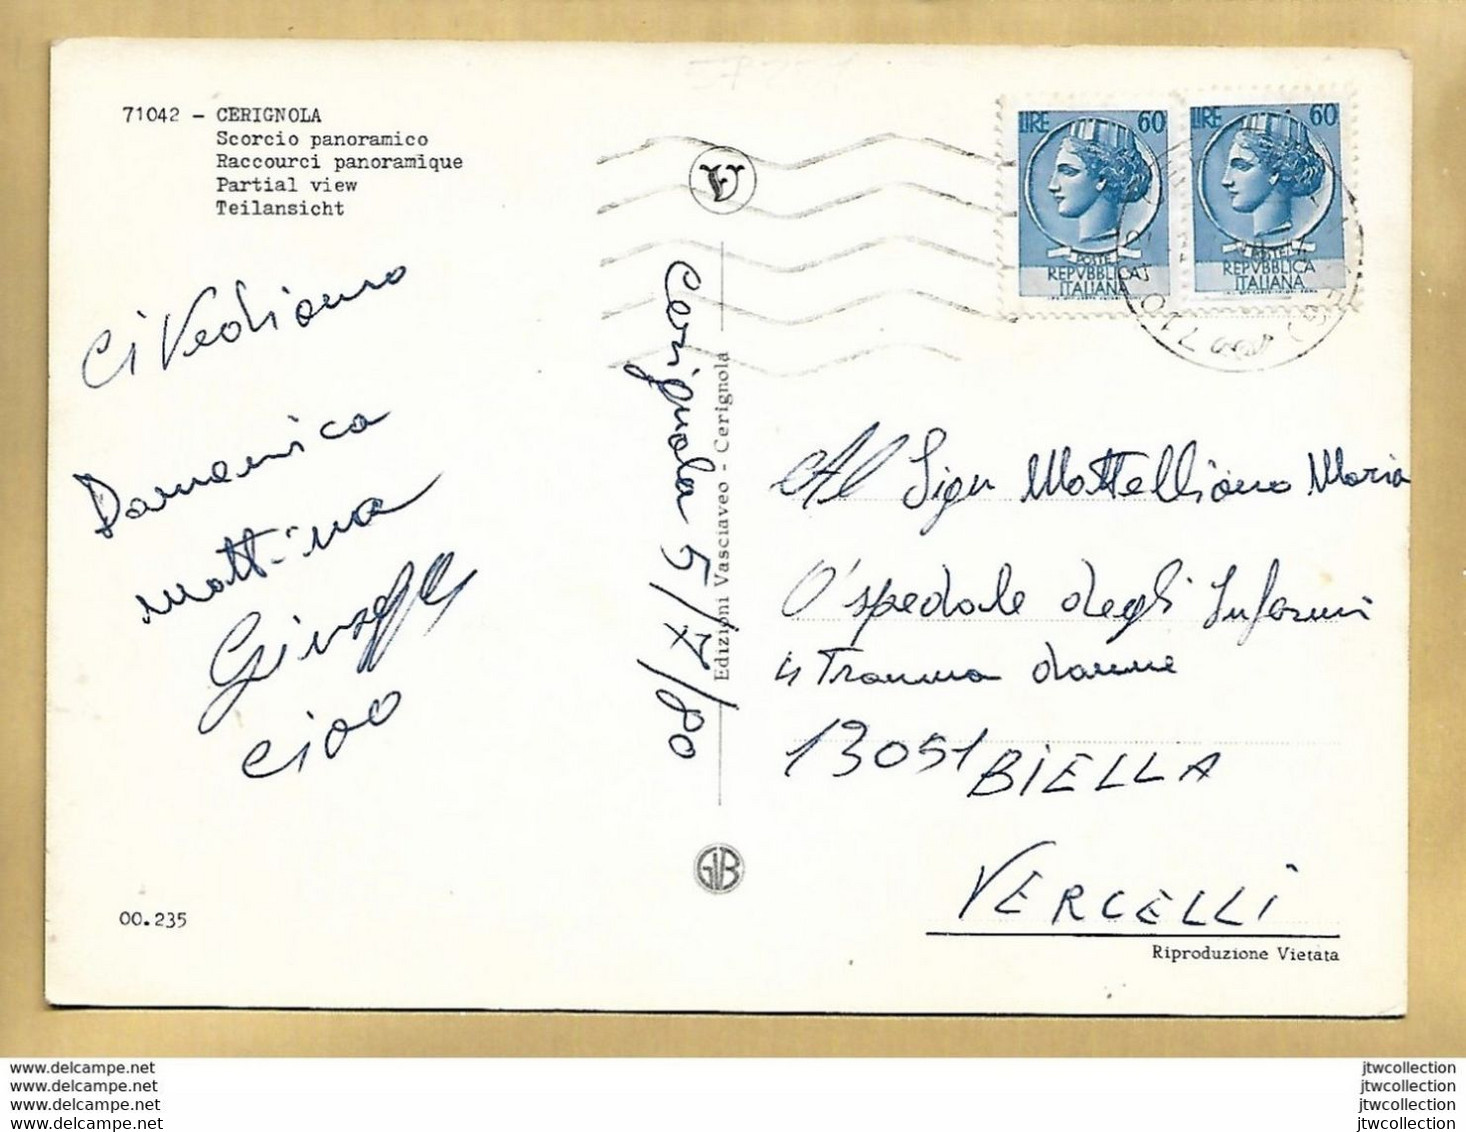 71042 - CERIGNOLA
Scorcio panoramico
Raccourci panoramique
Partial view
Teilansicht
Ci Vediamo
Domenica
mattina
Giuseppe
ciao
00.235
Cerignola 5/7/80
Edizioni Vasciaveo - Cerignola
GVB
LIRE 60
POSTE
REPVBBLICA
ITALIANA
LIRE 60
POSTE
REPVBBLICA
ITALIANA
710
Al Sign Mattelliano Maria
O'spedale degli Infermi
4 Trauma donne
13051 BIELLA
VERCELLI
Riproduzione Vietata
www.delcampe.net
www.delcampe.net
www.delcampe.net
www.delcampe.net
jtwcollection
jtwcollection
jtwcollection
jtwcollection